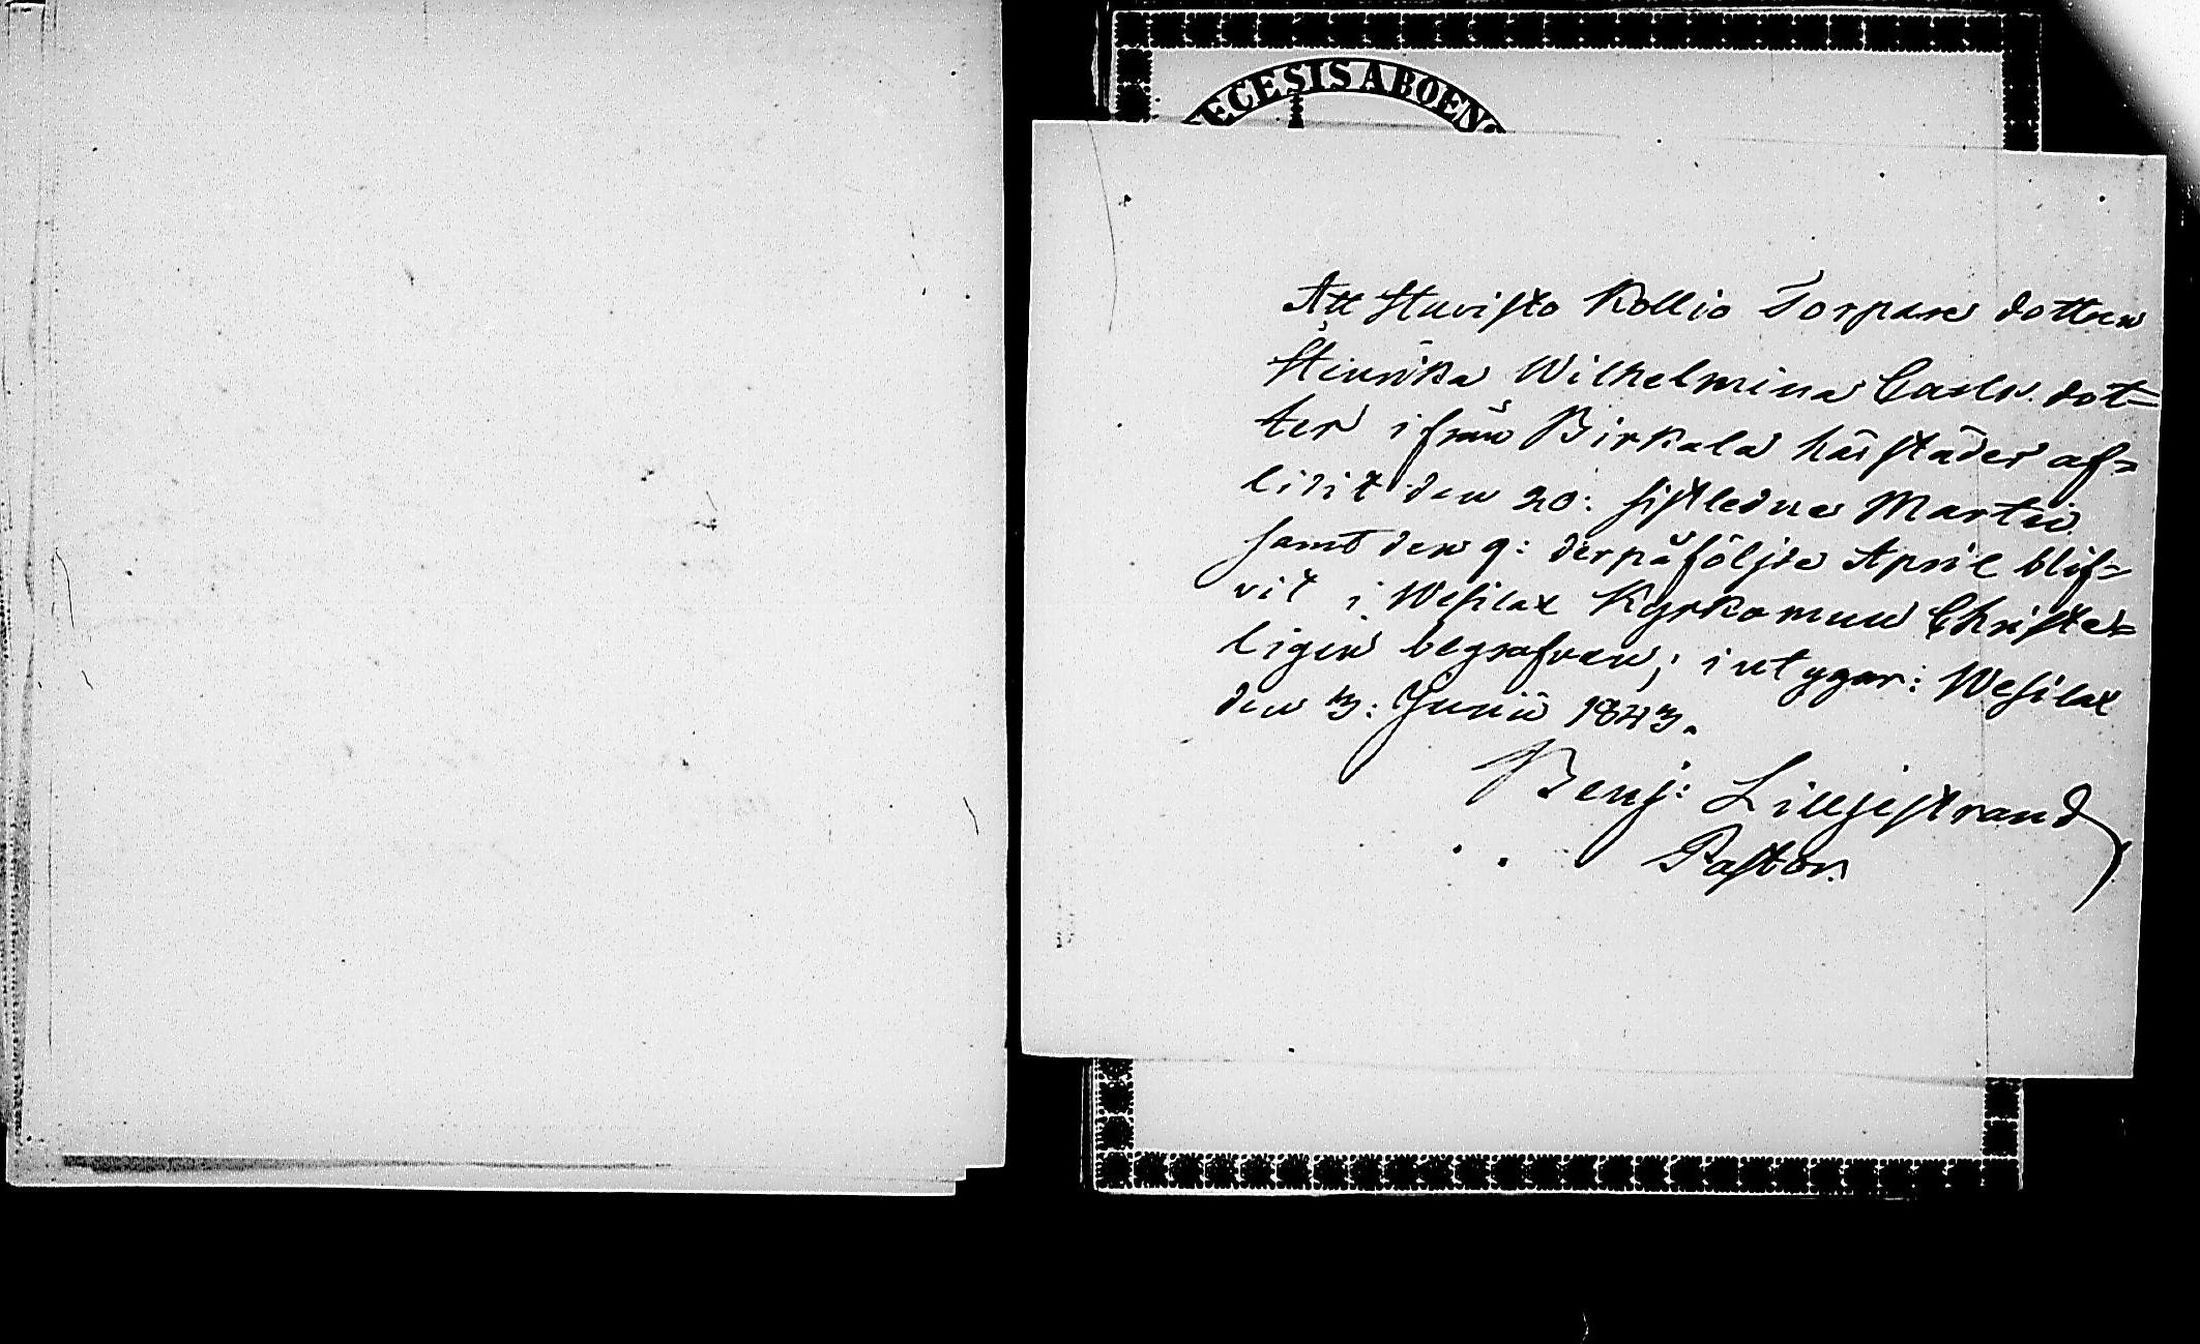 ECESIS ABOEN
Att Huvisto Kollio Torpare dottren
Henrika Wilhelmina Carls dot=
ter ifrån Birkala härstädes af=
lidit den 20: sistledne Martii
samt den 9: derpåföljde April blif=
vit i Wesilax Kyrkomull Christe=
ligen begrafven; intygar: Wesilax
den 3: Junii 1843.
Benj: Lilljestrand
Pastor.